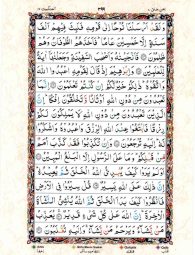 وَلَقَدْ اَرْسَلْنَا نُوْحًا اِلٰى قَوْمِهٖ فَلَبِثَ فِيْهِمْ اَلْفَ
سَنَةٍ اِلَّا خَمْسِيْنَ عَامًا فَاَخَذَهُمُ الطُّوْفَانُ وَهُمْ
ظٰلِمُوْنَ فَاَنْجَيْنٰهُ وَاَصْحٰبَ السَّفِيْنَةِ وَجَعَلْنٰهَا اٰيَةً
لِّلْعٰلَمِيْنَ وَاِبْرٰهِيْمَ اِذْ قَالَ لِقَوْمِهِ اعْبُدُوا اللهَ
وَاتَّقُوْهُ ذٰلِكُمْ خَيْرٌ لَّكُمْ اِنْ كُنْتُمْ تَعْلَمُوْنَ اِنَّمَا
تَعْبُدُوْنَ مِنْ دُوْنِ اللهِ اَوْثَانًا وَّتَخْلُقُوْنَ اِفْكًا اِنَّ
الَّذِيْنَ تَعْبُدُوْنَ مِنْ دُوْنِ اللهِ لَا يَمْلِكُوْنَ لَكُمْ
رِزْقًا فَابْتَغُوْا عِنْدَ اللهِ الرِّزْقَ وَاعْبُدُوْهُ وَاشْكُرُوْا
لَهٗ اِلَيْهِ تُرْجَعُوْنَ وَاِنْ تُكَذِّبُوْا فَقَدْ كَذَّبَ اُمَمٌ
مِّنْ قَبْلِكُمْ وَمَا عَلَى الرَّسُوْلِ اِلَّا الْبَلٰغُ الْمُبِيْنُ
اَوَلَمْ يَرَوْا كَيْفَ يُبْدِئُ اللهُ الْخَلْقَ ثُمَّ يُعِيْدُهٗ
اِنَّ ذٰلِكَ عَلَى اللهِ يَسِيْرٌ قُلْ سِيْرُوْا فِى الْاَرْضِ
فَانْظُرُوْا كَيْفَ بَدَاَ الْخَلْقَ ثُمَّ اللهُ يُنْشِئُ النَّشْاَةَ
الْاٰخِرَةَ اِنَّ اللهَ عَلٰى كُلِّ شَىْءٍ قَدِيْرٌ يُعَذِّبُ
مَنْ يَّشَآءُ وَيَرْحَمُ مَنْ يَّشَآءُ وَاِلَيْهِ تُقْلَبُوْنَ